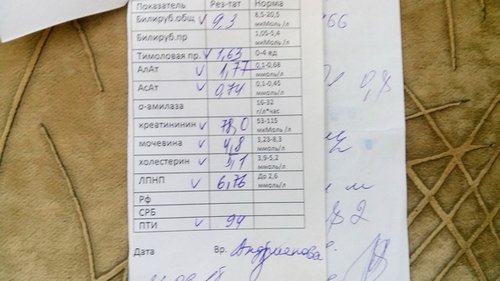 Показатель Рез-тат Норма
Билируб.общ v 9,3 8,5-20,5 мкМоль/л
Билируб.пр 1,05-5,4 мкМоль/л
Тимоловая пр. v 1,63 0-4 ед
АлАт v 1,77 0,1-0,68 ммоль/л
АсАт v 0,74 0,1-0,45 ммоль/л
α-амилаза 16-32 г/л*час
креатининин v 78,0 53-115 мкМоль/л
мочевина v 4,8 3,23-8,3 ммоль/л
холестерин v 5,1 3,9-5,2 ммоль/л
ЛПНП v 6,76 До 2,6 ммоль/л
Рф
СРБ
ПТИ v 94
Дата Вр. Андрианова